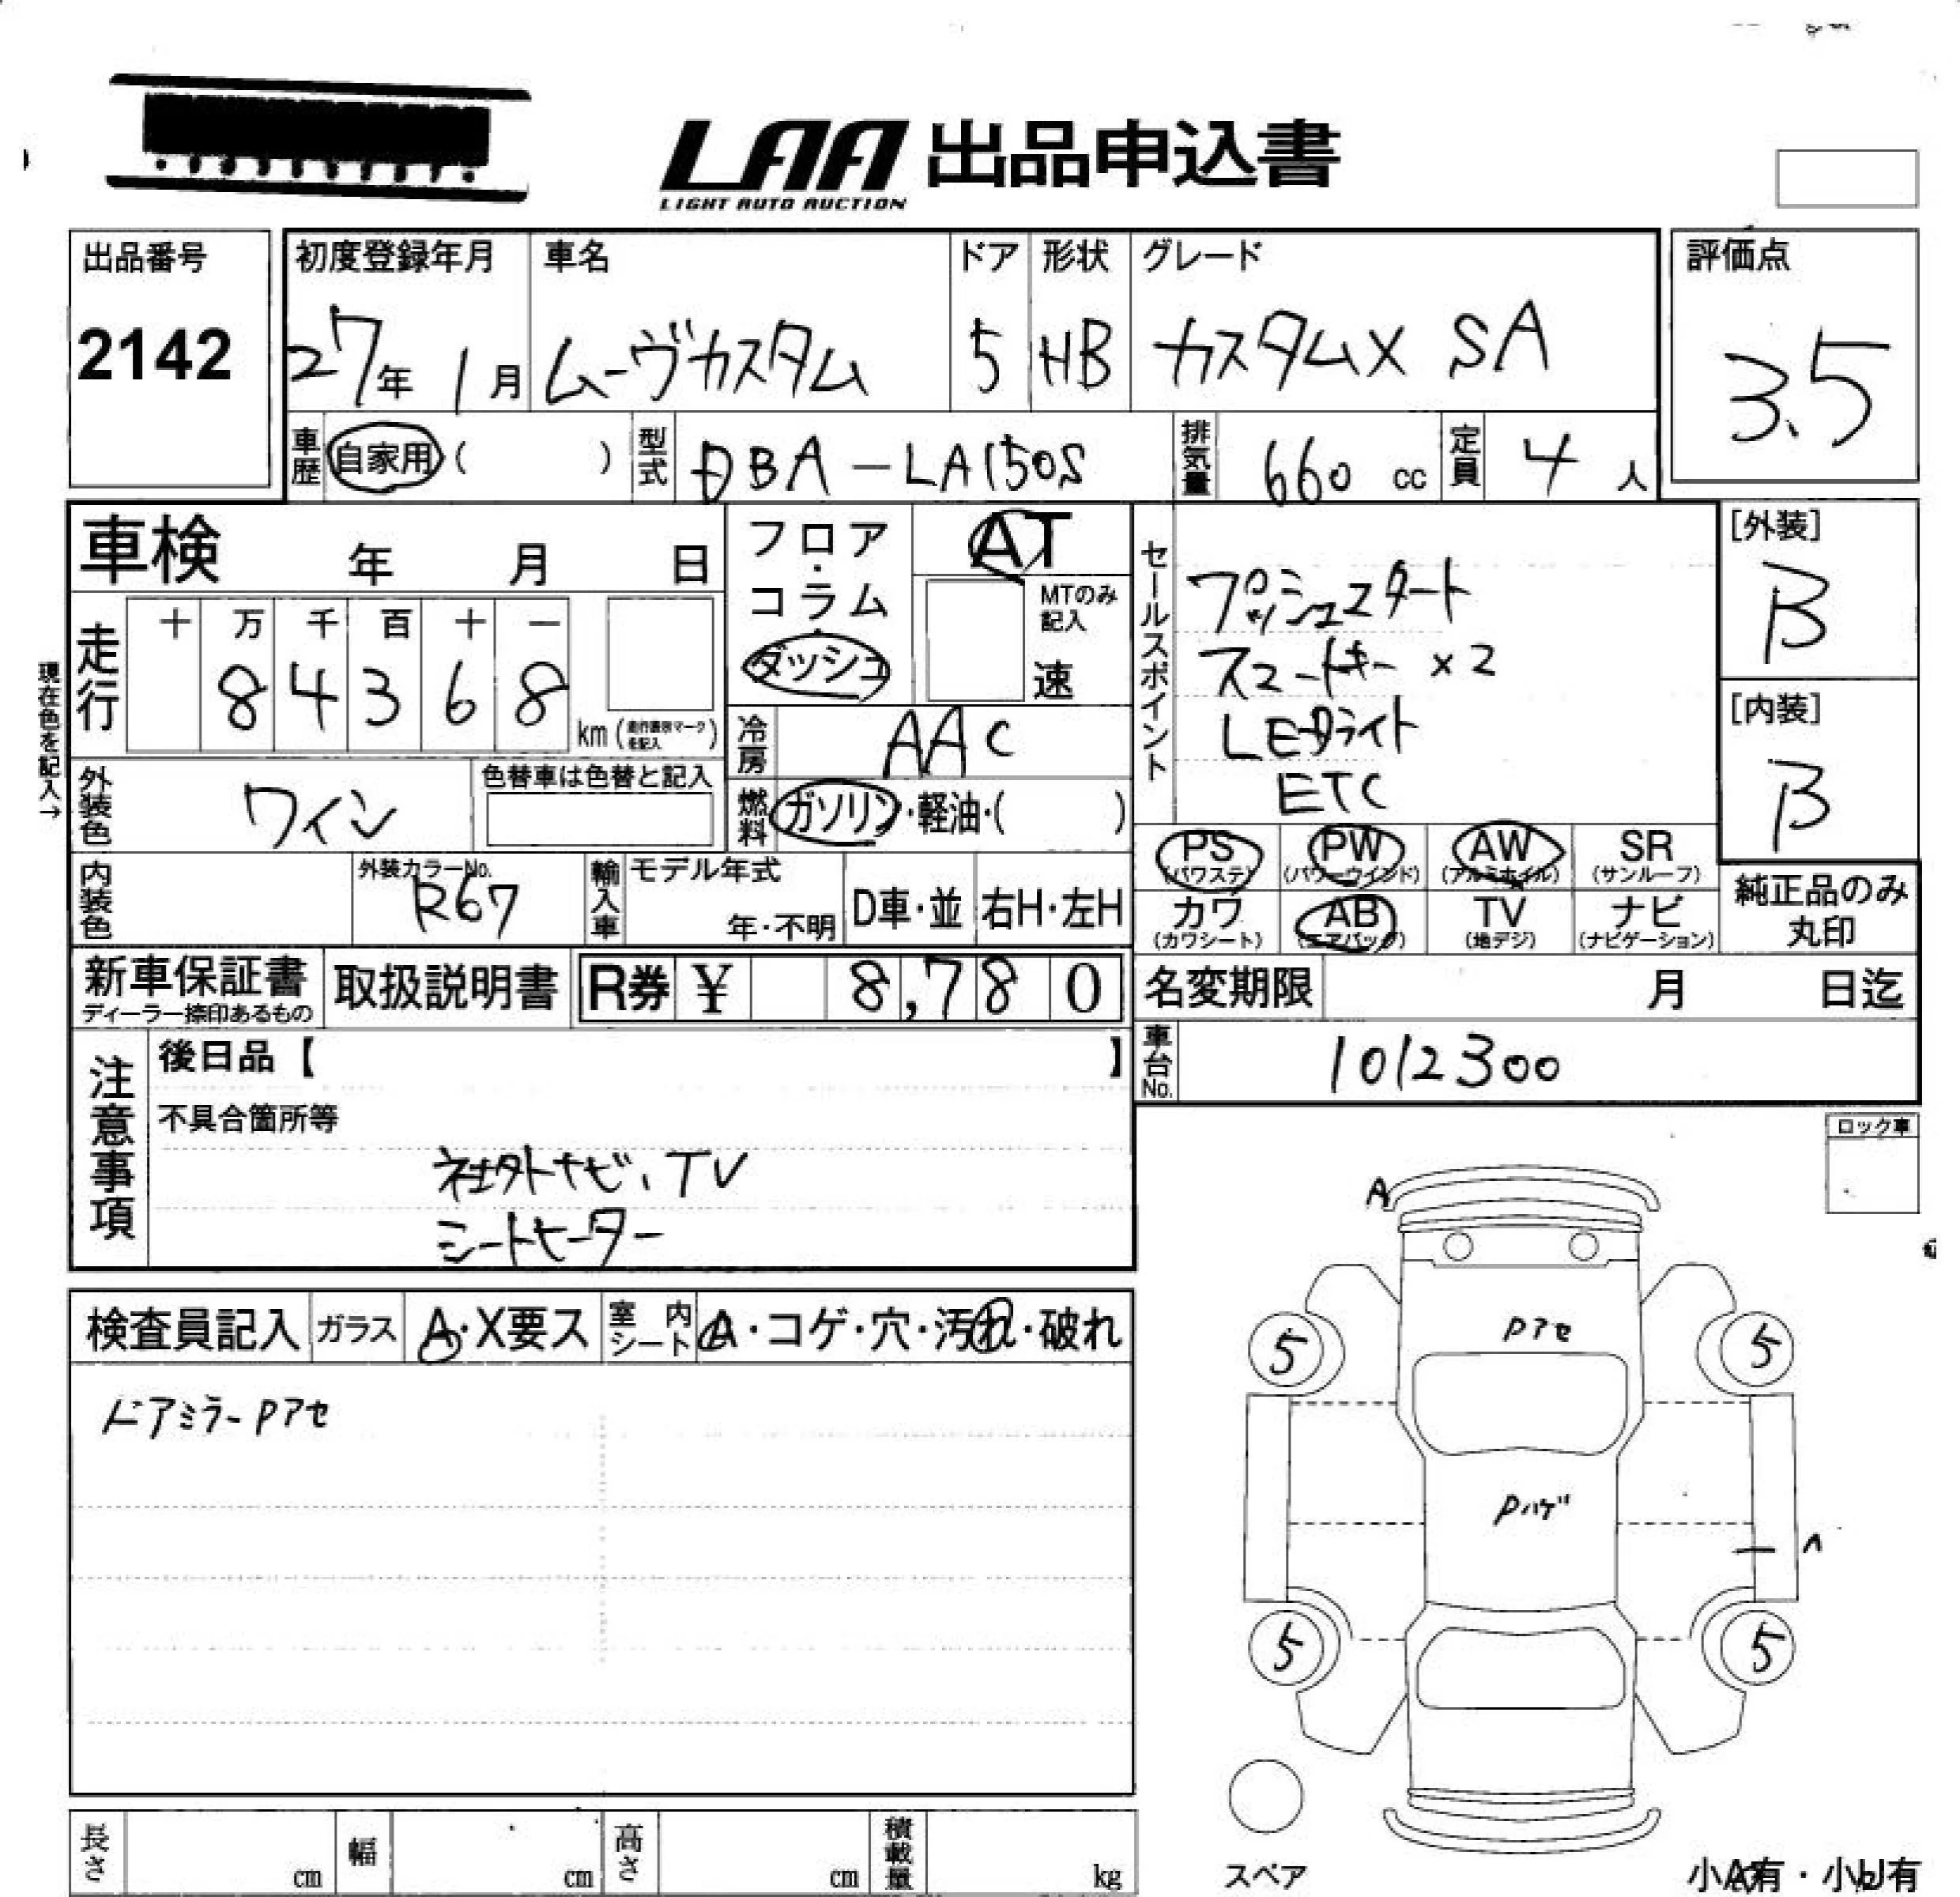 LAA 出品申込書
LIGHT AUTO AUCTION
出品番号
2142
初度登録年月
27年 1月
車名
ムーヴカスタム
ドア
5
形状
HB
グレード
カスタムX SA
評価点
3.5
車歴 自家用 ( )
型式 DBA-LA150S
排気量 660 cc
定員 4 人
車検 年 月 日
走行
十 万 千 百 十 一
8 4 3 6 8
km
現在色を記入→
外装色 ワイン
色替車は色替と記入
内装色
外装カラーNo.
R67
フロア・
コラム・
ダッシュ
AT
MTのみ
記入
速
冷房 AAC
燃料 ガソリン・軽油・( )
輸入車
モデル年式
年・不明
D車・並
右H・左H
セールスポイント
プッシュスタート
スマートキー ×2
LEDライト
ETC
[外装]
B
[内装]
B
PS (パワステ)
PW (パワーウインド)
AW (アルミホイル)
SR (サンルーフ)
カワ (カワシート)
AB (エアバッグ)
TV (地デジ)
ナビ (ナビゲーション)
純正品のみ
丸印
新車保証書
ディーラー捺印あるもの
取扱説明書
R券 ¥ 8,780
名変期限 月 日迄
車台No. 1012300
注意事項
後日品【 】
不具合箇所等
社外ナビ、TV
シートヒーター
ロック車
検査員記入
ガラス A・X要ス
室内シート A・コゲ・穴・汚れ・破れ
ドアミラーPアセ
A
Pアセ
5
5
Pハゲ
5
5
スペア
小A有・小U有
長さ cm
幅 cm
高さ cm
積載量 kg